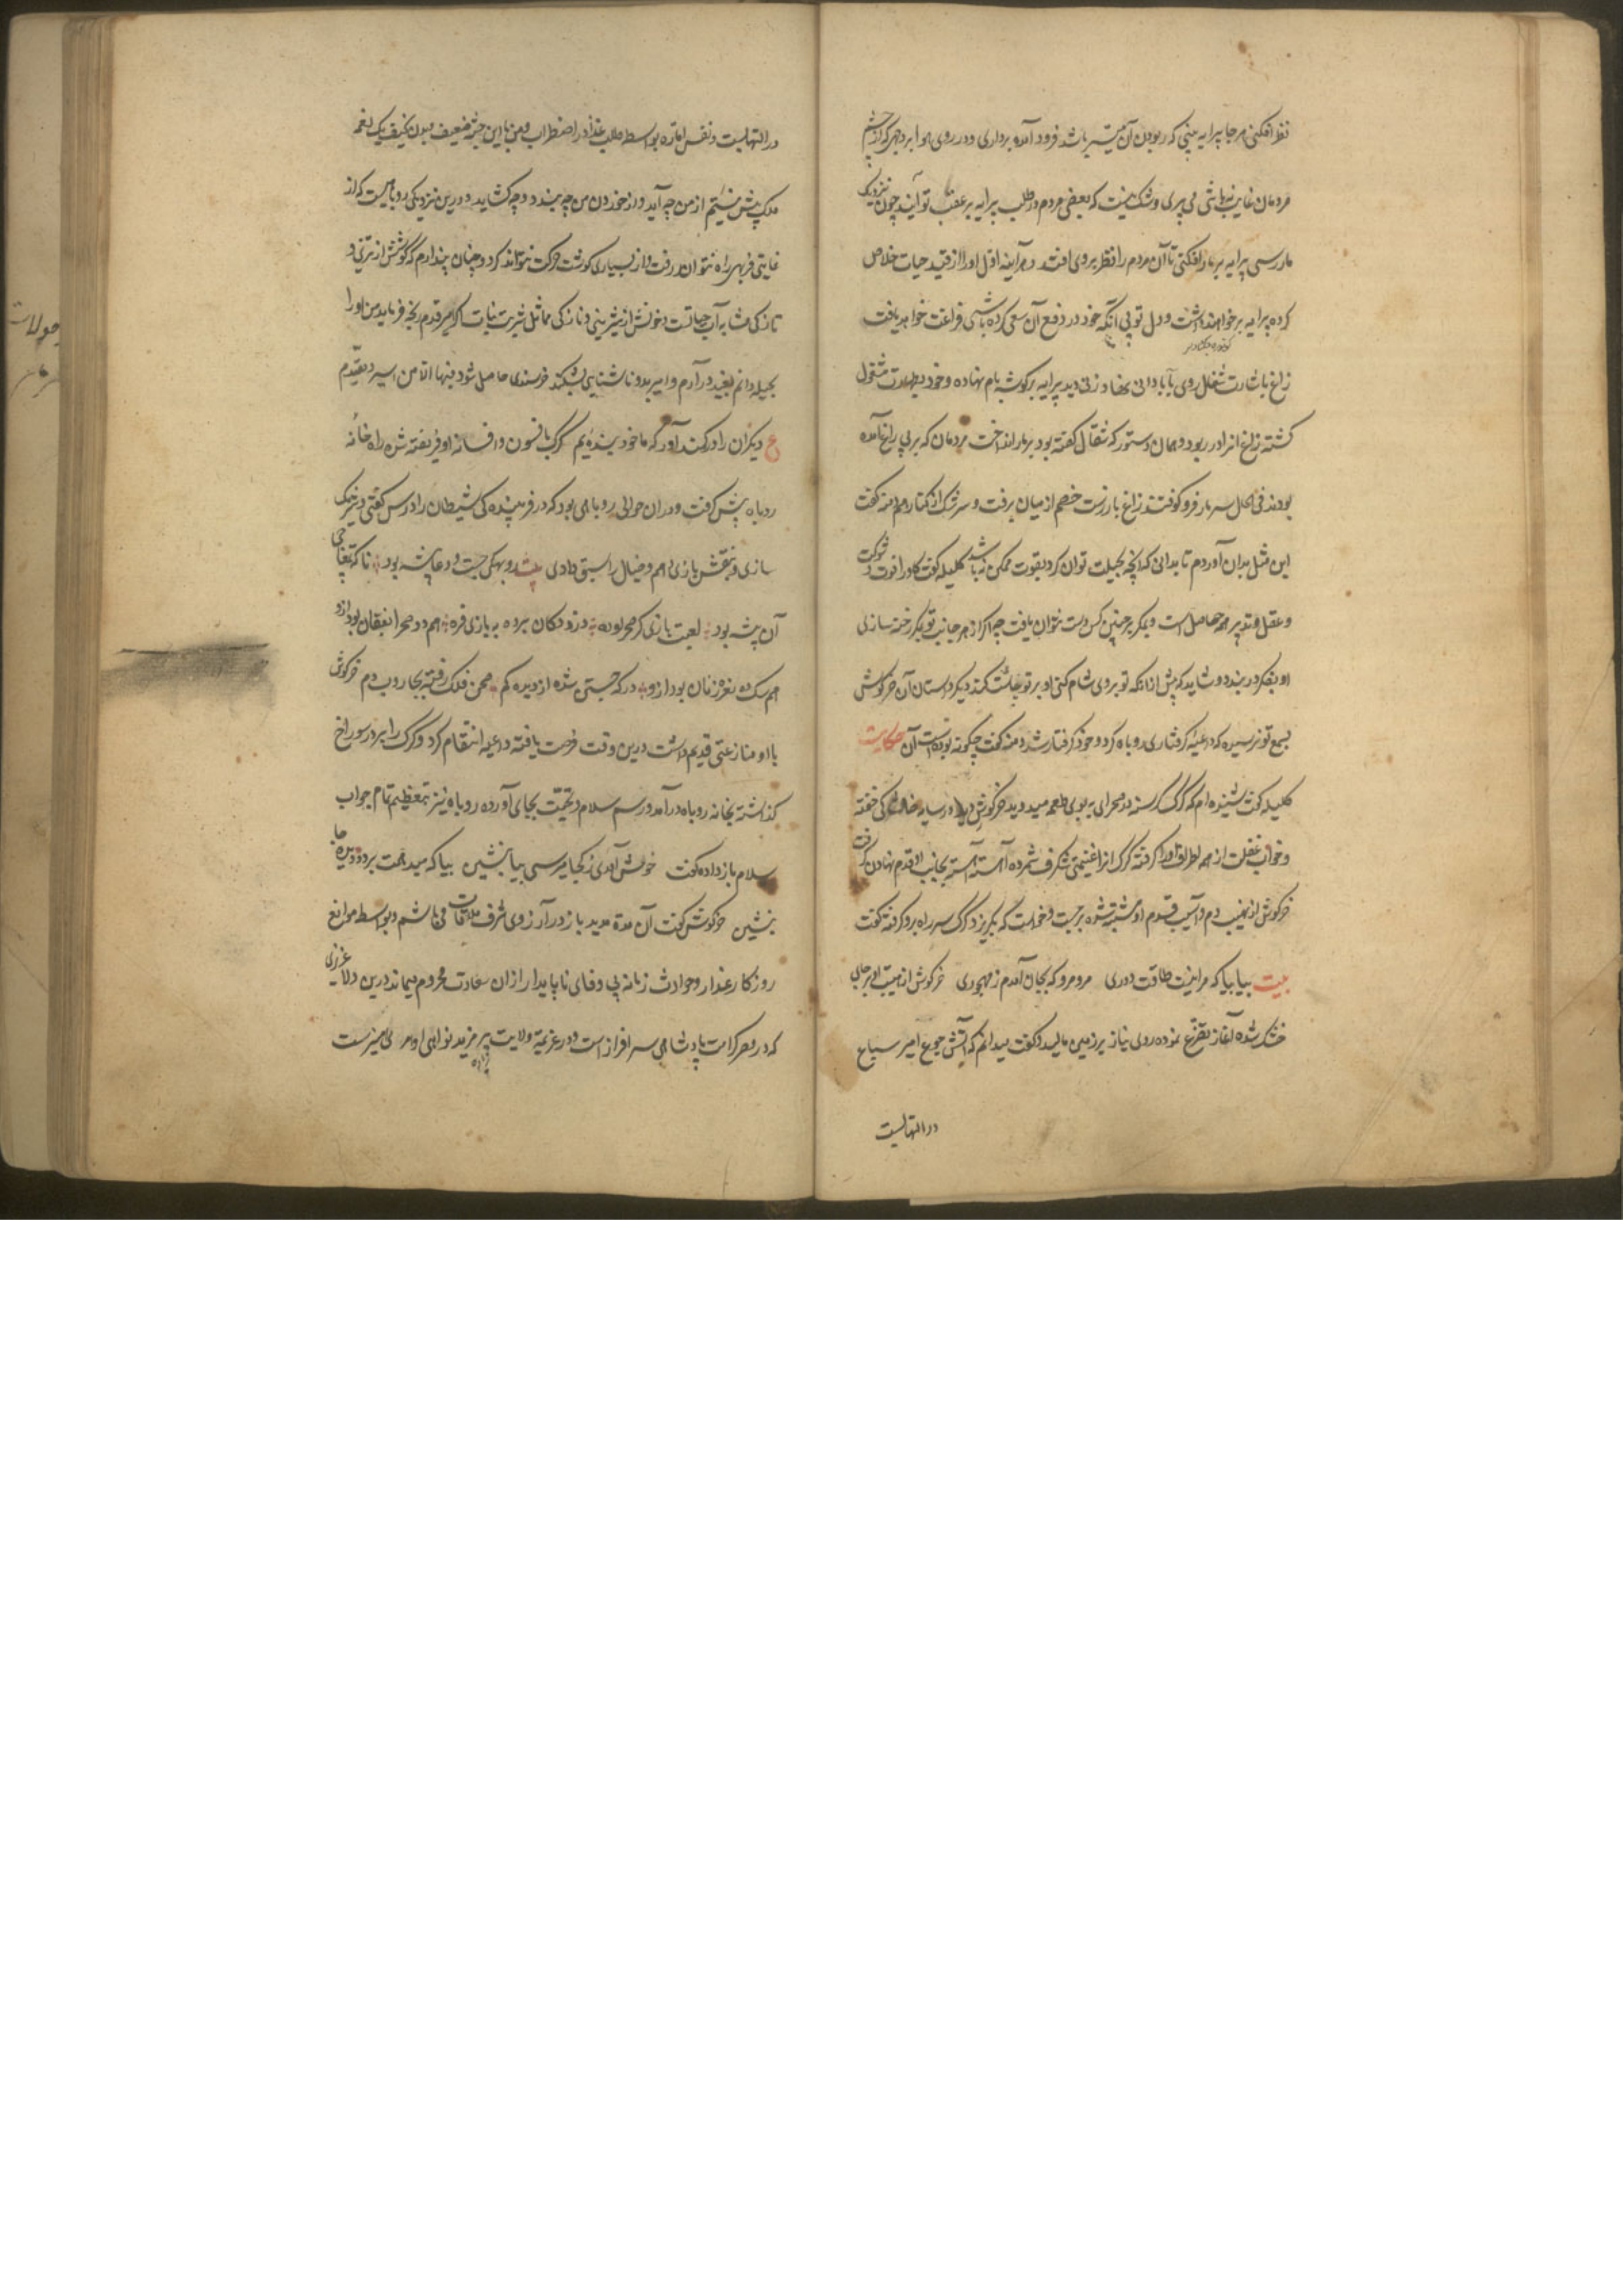 نظر افکنی هر جا پیرایه بینی که ربودن آن میسر باشد فرود آمده برداری و در روی هوا بر وجهی که از چشم
مردمان غایب نباشی می پری و شک نیست که بعضی مردم در طلب پیرایه بر عقب تو آیند چون نزدیک
مار رسی پیرایه بر مار افکنی تا آن مردم را نظر بر وی افتد هر آینه اول او را از قید حیات خلاص
کرده پیرایه بر خواهند داشت و دل تو بی آنکه خود در دفع آن سعی کرده باشی فراغت خواهد یافت
زاغ باشارت شغال روی بآبادانی نهاد زنی دید پیرایه بر گوشه بام نهاده و خود بطهارت مشغول
گشته زاغ آنرا در ربود و همان دستور که شغال گفته بود بر مار انداخت مردمان که در پی زاغ آمده
بودند فی الحال سر مار فرو کوفتند و زاغ باز رست خصم از میان برفت و سرشک از کنار هم دمنه گفت
این مثل بدان آوردم تا بدانی که آنچه بحیلت توان کرد بقوت ممکن نباشد کلیله گفت گاو را قوت و شوکت
و عقل و تدبیر همه حاصل است و بمکر بر چنین کس دست نتوان یافت چه اگر از هر جانب تو بمکر رخنه سازی
او بفکر در بندد و شاید که پیش از آنکه تو بر وی شام کنی او بر تو چاشت کند دیگر داستان آن خرگوش
بسمع تو نرسیده که داعیه گرفتاری روباه کرد و خود گرفتار شد دمنه گفت چگونه بوده است آن حکایت
کلیله گفت شنیده ام که گرگ گرسنه در صحرای به بوی طعمه میدوید خرگوش دید در سایه خاربنی خفته
و خواب غفلت از همه اطراف او را گرفته گرگ آنرا غنیمتی شگرف شمرده آهسته آهسته بجانب او قدم نهادن گرفت
خرگوش از نهیب دم و آسیب قدم او متنبه شده برجست و خواست که بگریزد گرگ سر راه برو گرفته گفت
بیت بیا بیا که مرا نیست طاقت دوری مرو مرو که بجان آمدم ز مهجوری خرگوش از هیبت او بر جای
خشک شده آغاز تضرع نموده روی نیاز بر زمین مالید و گفت میدانم که آتش جوع امیر سباع
در التهابست
در التهابست و نفس اماره بواسطه طلب غذا در اضطراب و من با این جثه ضعیف و بدن نحیف یک لقمه
ملک بیش نیستم از من چه آید و از خوردن من چه بندد و چه گشاید و درین نزدیکی روباهیست که از
غایت فربهی راه نتواند رفت و از بسیاری گوشت حرکت نتواند کرد و چنان پندارم که گوشتش از تری و
تازگی مشابه آب حیاتست و خونش از شیرینی و نازکی مماثل شربت نبات اگر امیر قدم رنجه فرماید من او را
بحیله دانم بقید در آرم و امیر بدو ناشتایی بشکند خرسندی حاصل شود فبها و الا من اسیر و مقیدم
ع دیگران را در کمند آور که ما خود بنده ایم گرگ بافسون و افسانه او فریفته شده راه خانه
روباه پیش گرفت و در آن حوالی روباهی بود که در فریبندگی شیطان را درس گفتی در نیرنگ
سازی و نقش بازی وهم و خیال را سبق دادی
آن بیشه بود
بااو منازعتی قدیم داشت درین وقت فرصت یافته داعیه انتقام کرد و گرگ را بر در سوراخ
گذاشته بخانه روباه در آمد و رسم سلام و تحیت بجای آورده روباه نیز بتعظیم تمام جواب
سلام باز داده گفت خوش آمدی ز کجا میرسی بیا بنشین بیا که میدهمت بر دو دیده جا
بنشین خرگوش گفت آن مدة مدید باز در آرزوی شرف ملاقات می باشم و بواسطه موانع
روزگار غدار و حوادث زمانه بی وفای ناپایدار از ان سعادت محروم میماند درین ولا عزیزی
که در مصر کرامت پادشاهی سر افراز است و در عرصه ولایت پیر